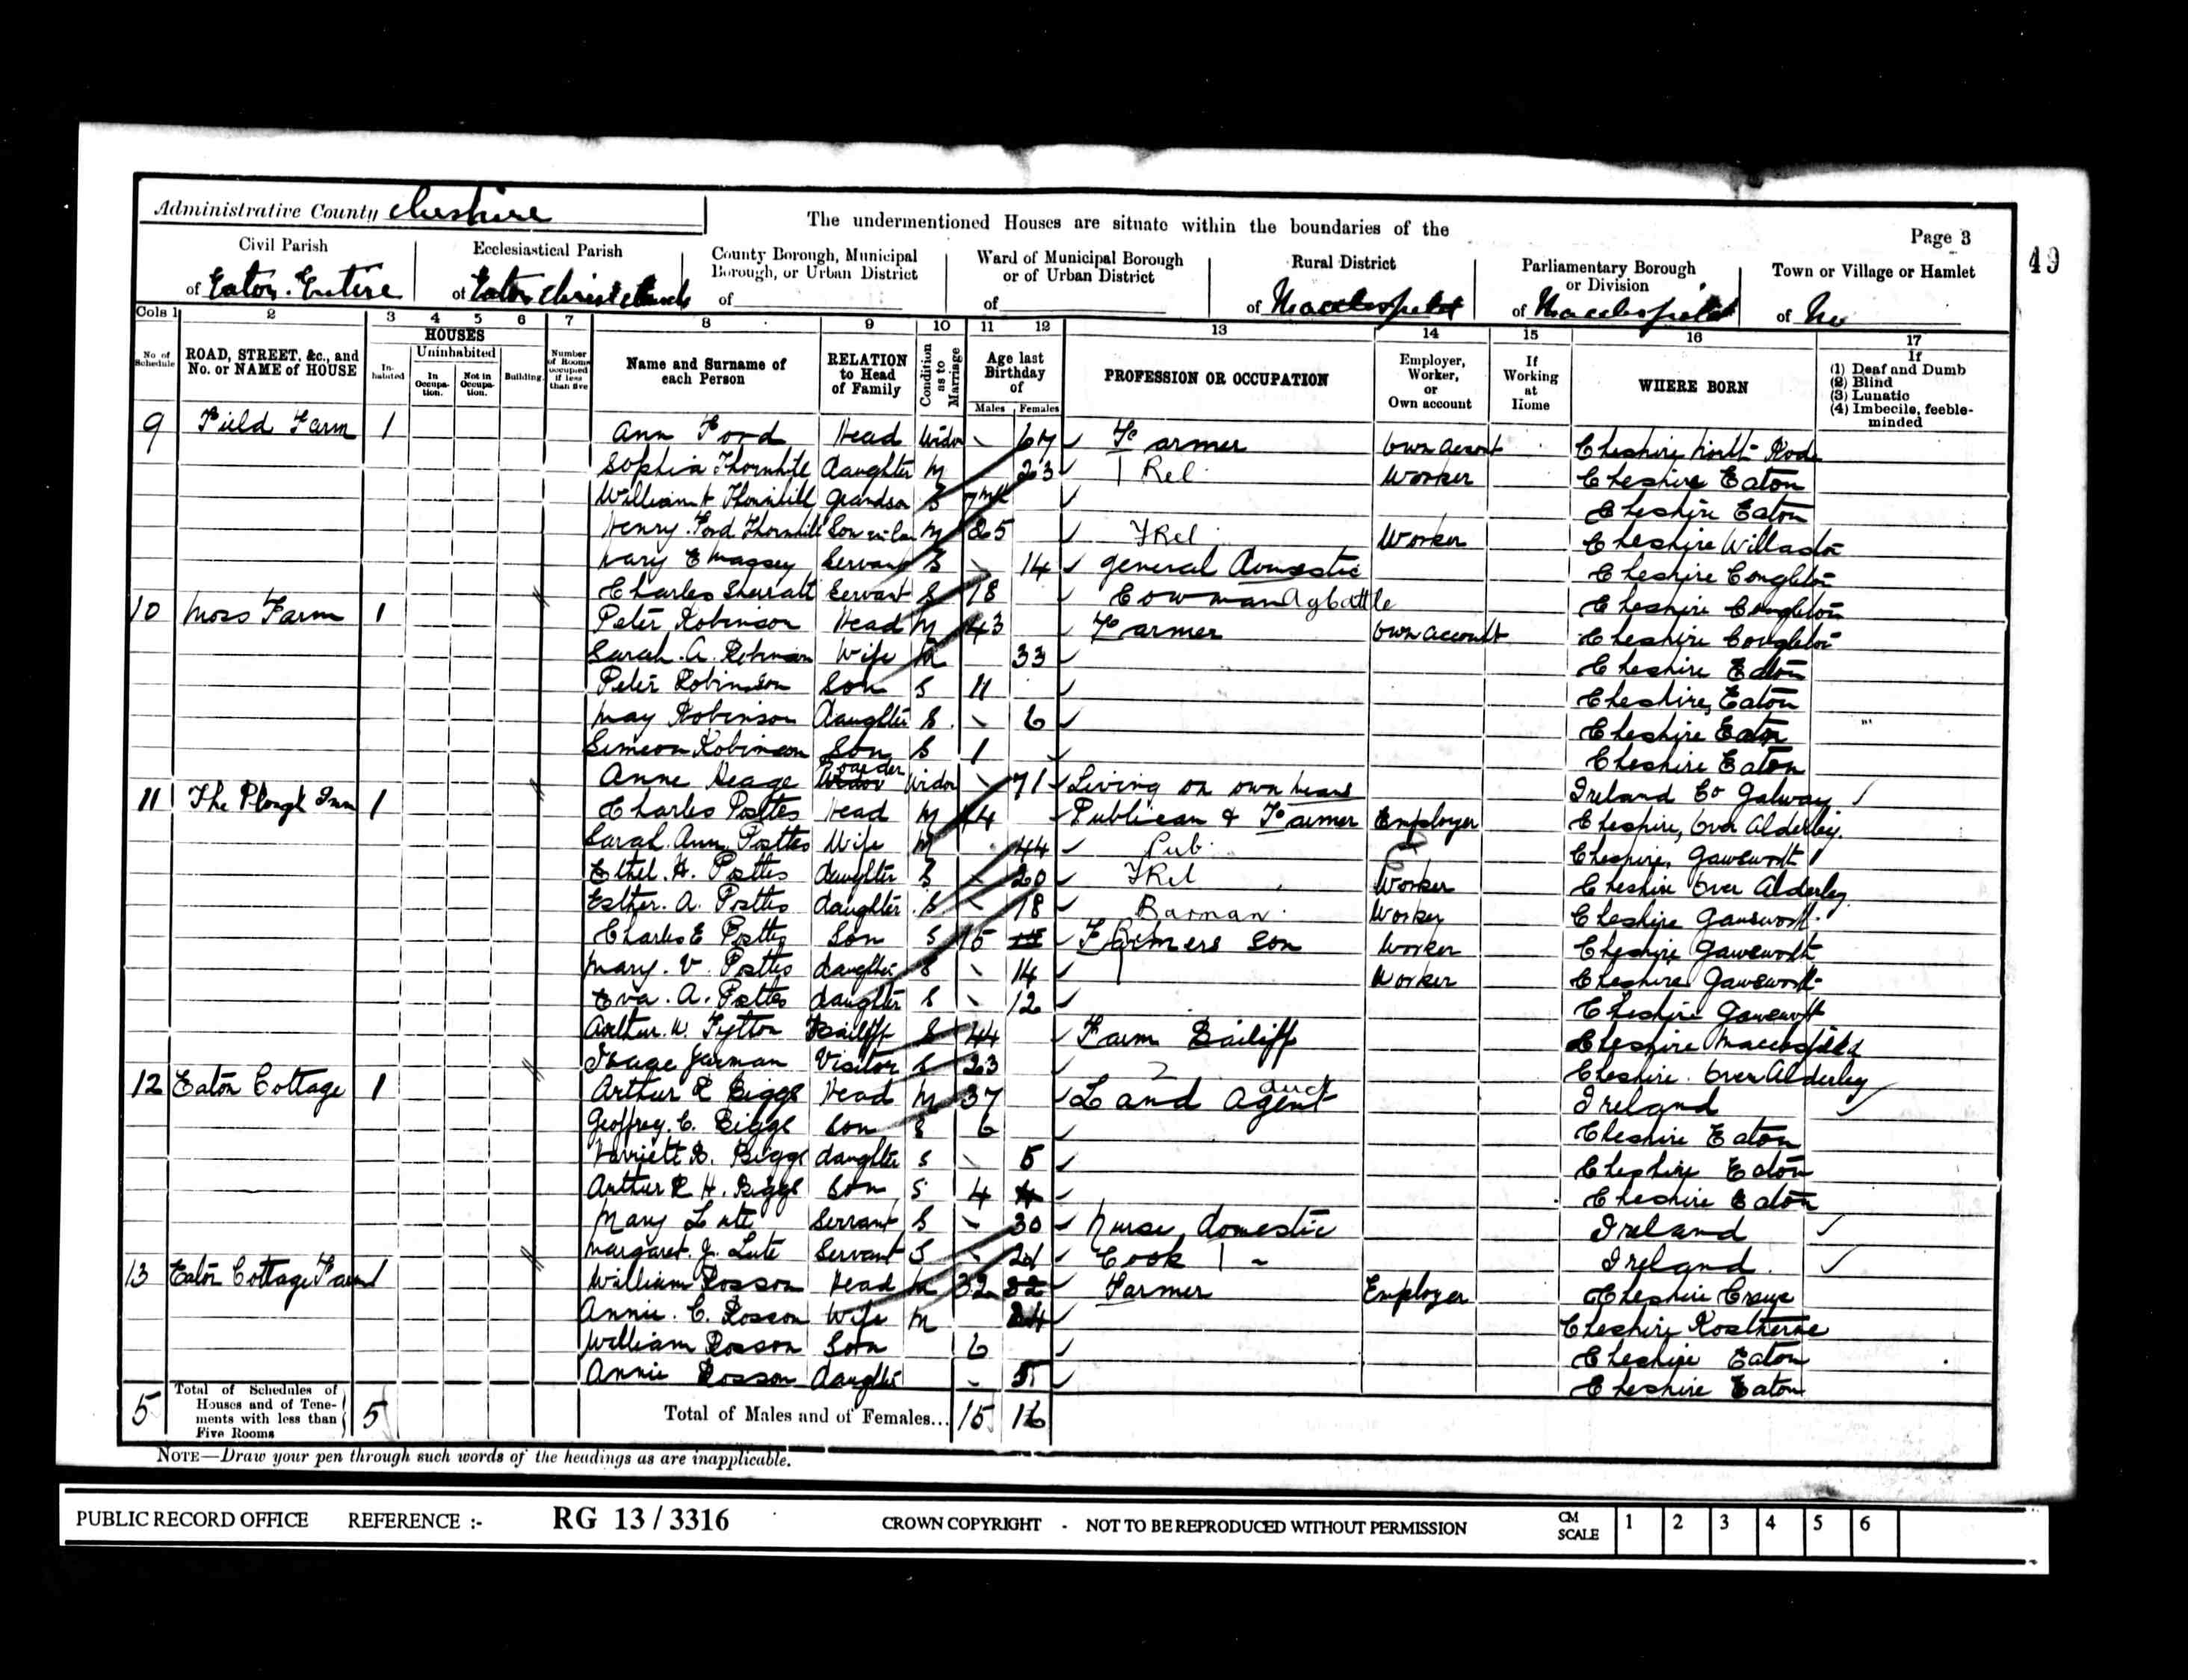 Administrative County Cheshire
The undermentioned Houses are situate within the boundaries of the
Page 3
49
Civil Parish of Eaton Entire
Ecclesiastical Parish of Eaton Christ Church
County Borough, Municipal Borough, or Urban District of
Ward of Municipal Borough or of Urban District of
Rural District of Macclesfield
Parliamentary Borough or Division of Macclesfield
Town or Village or Hamlet of
Cols 1 2 3 4 5 6 7 8 9 10 11 12 13 14 15 16 17
No of Schedule
ROAD, STREET, &c., and No. or NAME of HOUSE
HOUSES
Inhabited
Uninhabited
In Occupation.
Not in Occupation.
Building.
Number of Rooms occupied if less than five
Name and Surname of each Person
RELATION to Head of Family
Condition as to Marriage
Age last Birthday of
Males Females
PROFESSION OR OCCUPATION
Employer, Worker, or Own account
If Working at Home
WHERE BORN
If
(1) Deaf and Dumb
(2) Blind
(3) Lunatic
(4) Imbecile, feeble-minded
9 Field Farm 1 Ann Ford Head Widow Farmer Own account Cheshire North Rode
Sophia Thornhill daughter M 23 Rel Worker Cheshire Eaton
William Thornhill Grandson S Cheshire Eaton
Henry Ford Thornhill Son in law M 25 Rel Worker Cheshire Willaston
Mary E Massey Servant S 14 general Domestic Cheshire Congleton
Charles Sherratt Servant S 18 Cowman Ag battle Cheshire Congleton
10 Moss Farm 1 Peter Robinson Head M 43 Farmer Own account Cheshire Congleton
Sarah. A. Robinson Wife M 33 Cheshire Eaton
Peter Robinson Son S 11 Cheshire, Eaton
May Robinson Daughter S 6 Cheshire Eaton
Simeon Robinson Son S 1 Cheshire Eaton
Anne Heage Boarder Widow 71 Living on own means Ireland Co Galway
11 The Plough Inn 1 Charles Pottes Head M 44 Publican & Farmer Employer Cheshire, Over Alderley.
Sarah Ann Pottes Wife M 44 Pub. Cheshire, Gawsworth
Ethel. H. Pottes daughter S 20 Rel Worker Cheshire Over Alderley
Esther. A. Pottes daughter S 18 Barman Worker Cheshire Gawsworth
Charles E Pottes Son S 15 Farmers Son Worker Cheshire Gawsworth
Mary. V. Pottes daughter S 14 Worker Cheshire Gawsworth
Eva. A. Pottes daughter S 12 Cheshire Gawsworth
Arthur. W. Fytton Bailiff S 44 Farm Bailiff Cheshire Macclesfield
Jarman Visitor S 23 Cheshire. Over Alderley
12 Eaton Cottage 1 Arthur R Biggs Head M 37 Land Agent Ireland
Geoffrey. C. Biggs Son S 6 Cheshire Eaton
Harriett B. Biggs daughter S 5 Cheshire Eaton
Arthur R H. Biggs Son S 4 Cheshire Eaton
Mary Lute Servant S 30 Nurse domestic Ireland
Margaret. J. Lute Servant S Cook Ireland
13 Eaton Cottage Farm 1 William Rosson Head M 32 Farmer Employer Cheshire Crewe
Annie. C. Rosson Wife M Cheshire Rostherne
William Rosson Son 6 Cheshire Eaton
Annie Rosson daughter 5 Cheshire Eaton
5 Total of Schedules of Houses and of Tenements with less than Five Rooms 5 Total of Males and of Females... 15 16
NOTE—Draw your pen through such words of the headings as are inapplicable.
PUBLIC RECORD OFFICE REFERENCE :- RG 13 / 3316 CROWN COPYRIGHT - NOT TO BE REPRODUCED WITHOUT PERMISSION CM SCALE 1 2 3 4 5 6